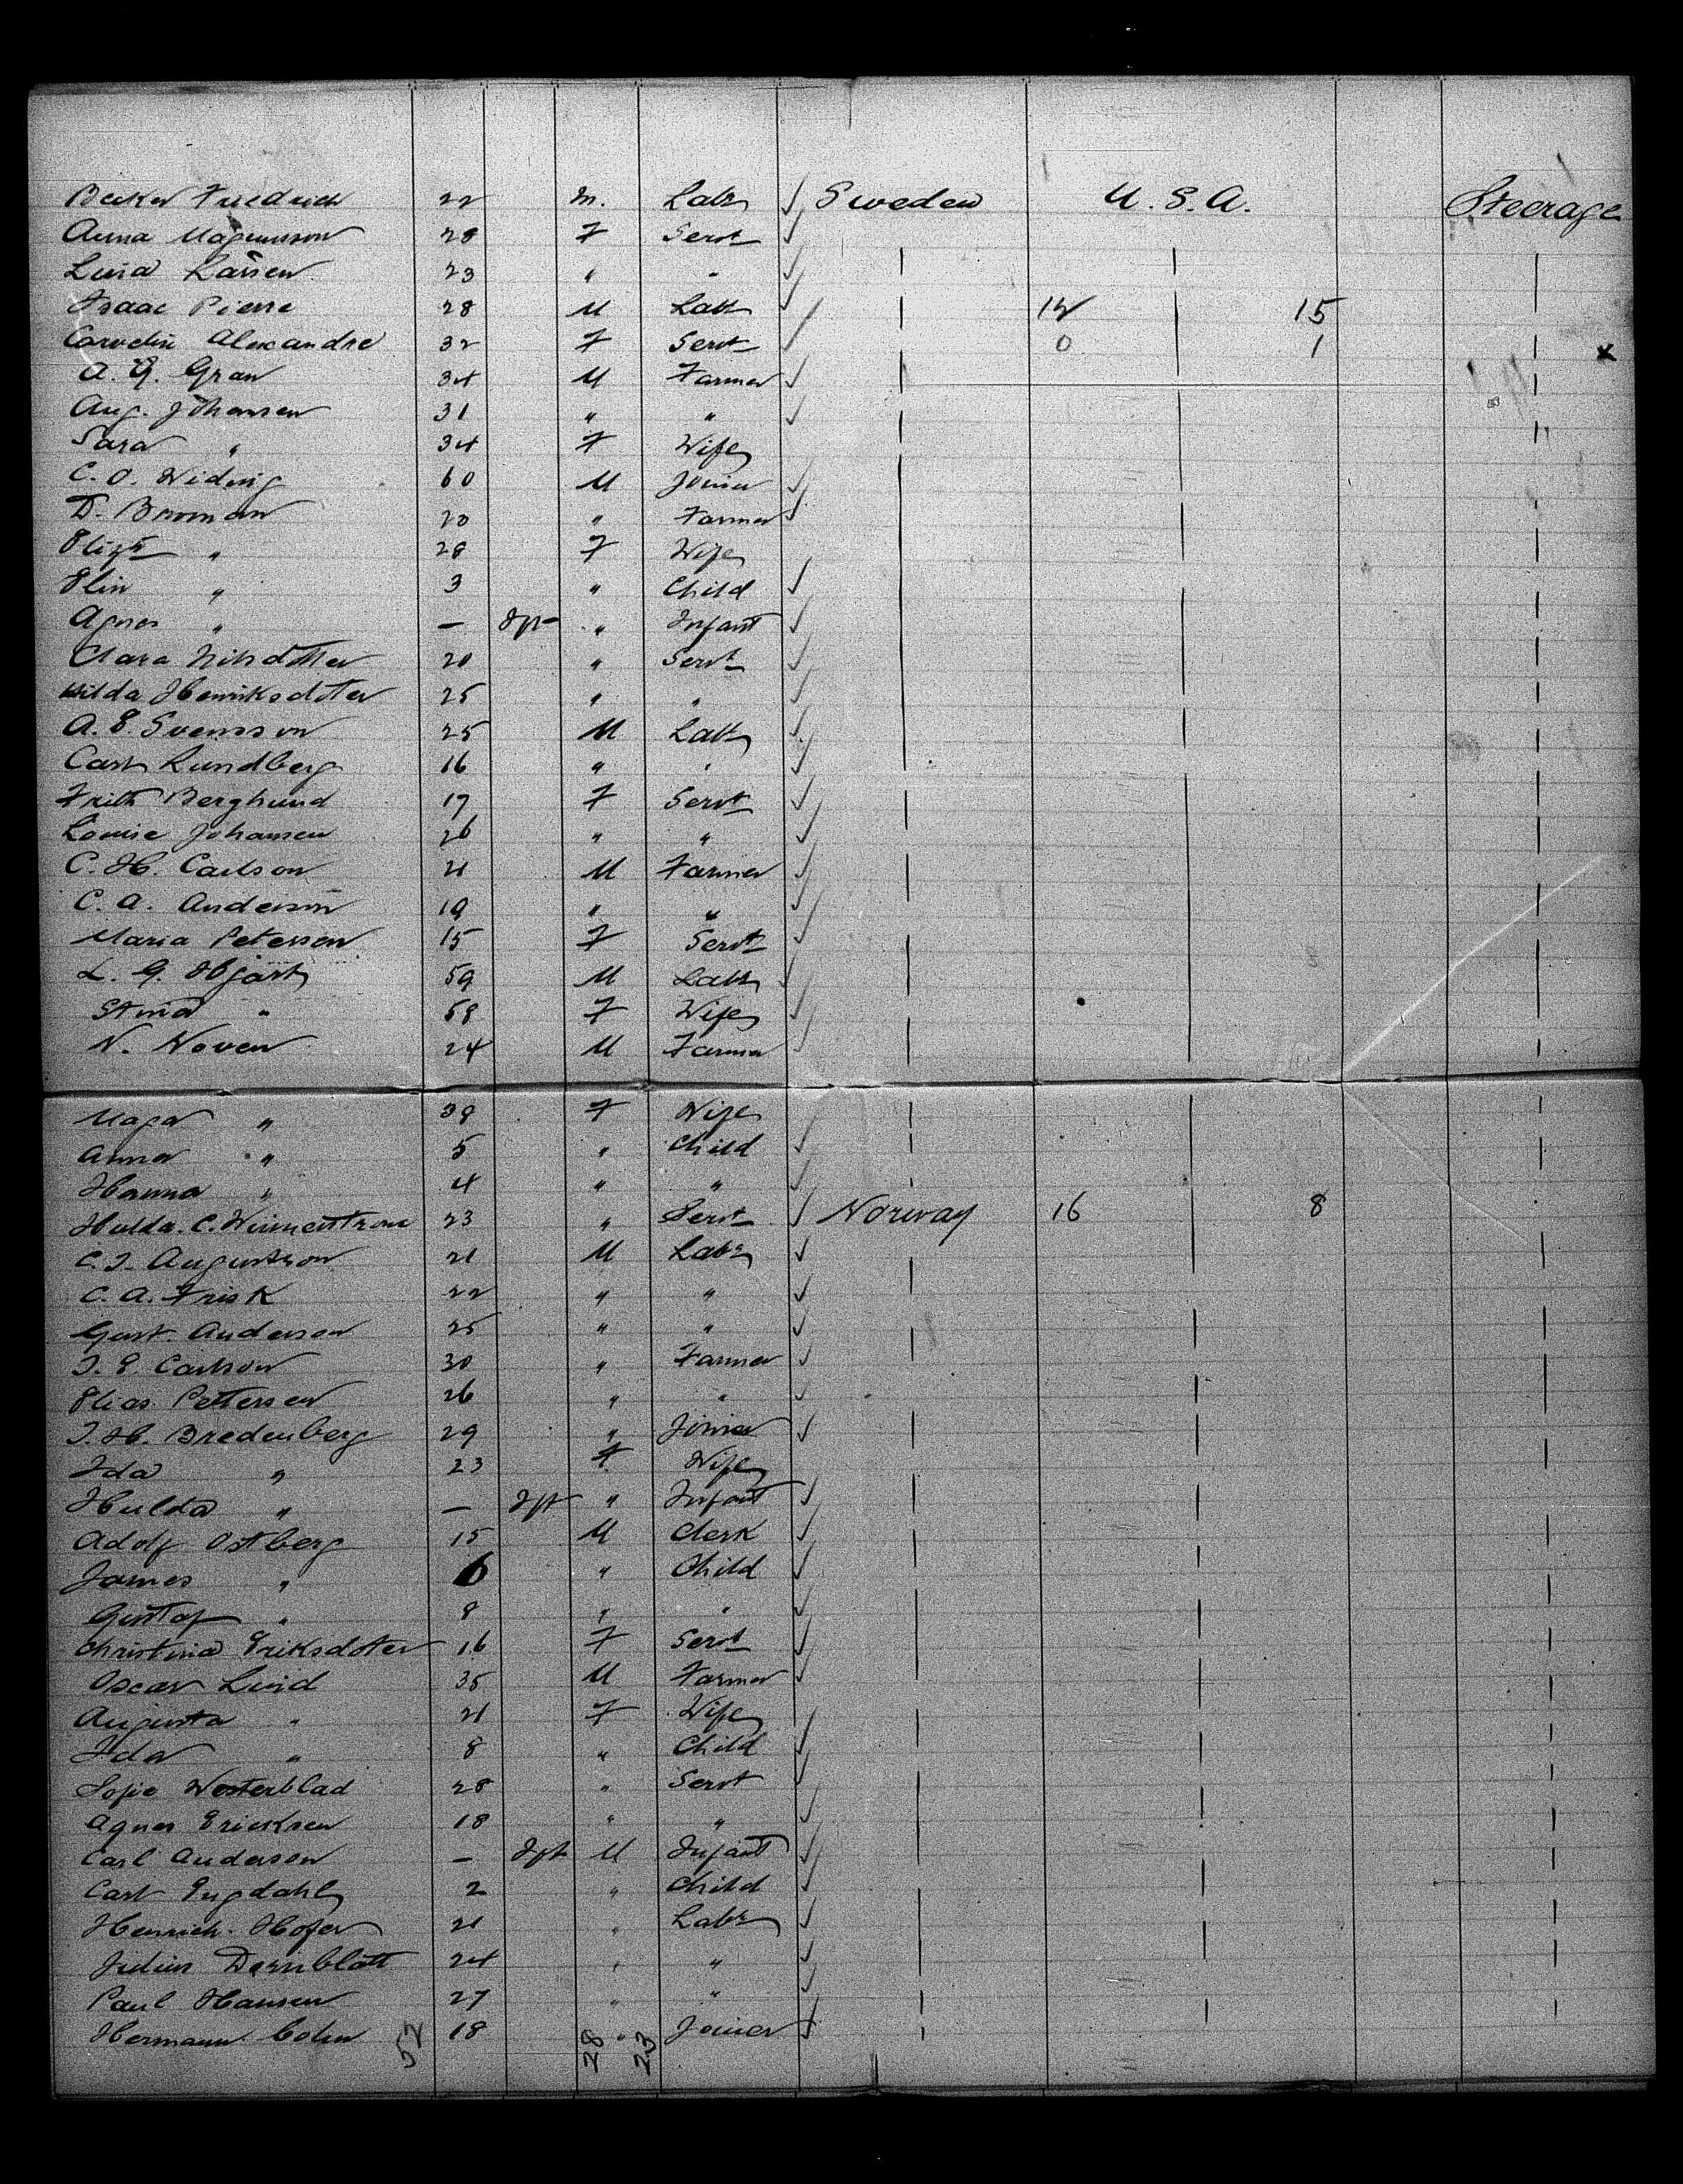 Becker Friedrich 22 M. Labr ✓ Sweden U.S.A. Steerage
Anna Magnusson 28 F Servt ✓
Lina Larsen 23 " " ✓
Isaac Pierre 28 M Labr ✓ 12 15
Alexandre 32 F Servt ✓ 0 1 x
A. G. Gran 34 M Farmer ✓
Aug. Johansen 31 " " ✓
Sara " 34 F Wife
C. O. Widing 60 M Joiner ✓
D. Broman 28 " Farmer ✓
Elizth " 28 F Wife
Elin " 3 " Child ✓
Agnes " — Inft " Infant ✓
Clara Nilsdotter 20 " Servt ✓
Hilda Henriksdoter 25 " " ✓
A. E. Svensson 25 M Labr ✓
Carl Lundberg 16 " " ✓
Berglund 17 F Servt ✓
Louise Johansen 26 " " ✓
C. H. Carlson 21 M Farmer ✓
C. A. Anderson 19 " " ✓
Maria Peterson 15 F Servt ✓
L. G. 59 M Labr ✓
Stina " 58 F Wife ✓
N. Noven 24 M Farmer ✓
" 28 F Wife ✓
Anna " 5 " Child ✓
Hanna " 4 " " ✓
Hulda. C. 23 " Servt ✓ Norway 16 8
Augustson 21 M Labr ✓
C. A. Frisk 22 " " ✓
Gust. Anderson 25 " " ✓
J. E. Carlson 30 " Farmer ✓
Elias Pettersen 26 " " ✓
J. H. Bredenberg 29 " Joiner ✓
Ida " 23 F Wife
Hulda " — Inft " Infant ✓
Adolf Ostberg 15 M Clerk ✓
James " 6 " Child ✓
Gustaf " 8 " " ✓
Christina Eriksdoter 16 F Servt ✓
Oscar Lind 35 M Farmer ✓
Augusta " 21 F Wife
Ida " 8 " Child ✓
Sofie Westerblad 28 " Servt ✓
Agnes Ericksen 18 " " ✓
Carl Anderson — Inft M Infant ✓
Carl Engdahl 2 " Child ✓
Henrich. Hofer 21 " Labr ✓
Julius 24 " " ✓
Paul Hansen 27 " " ✓
Hermann Cohn 18 " Joiner ✓
52 28 23